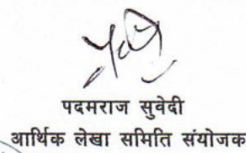 पदमराज सुवेदी
आर्थिक लेखा समिति संयोजक